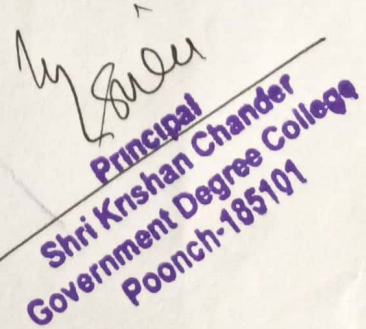 Principal
Shri Krishan Chander
Government Degree College
Poonch-185101